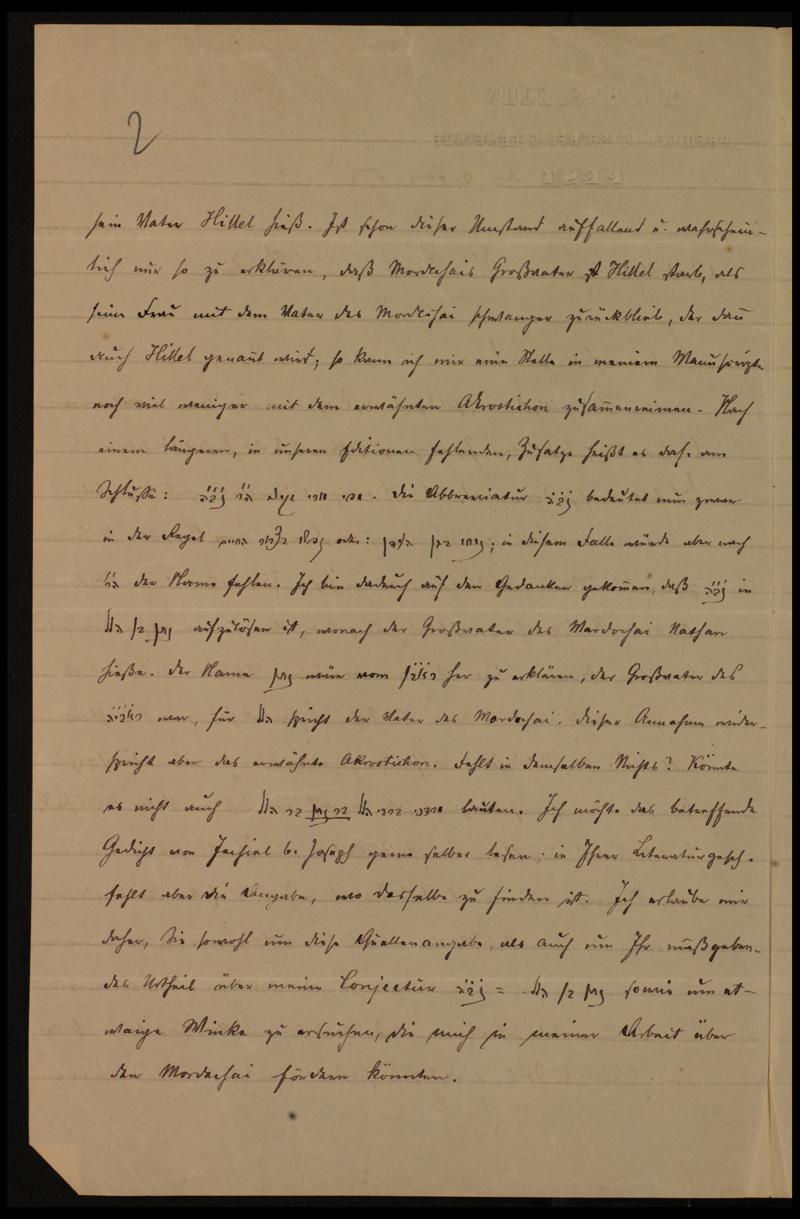 2
sein Vater Hillel hieß. Ist schon dieser Umstand auffallend u. wahrschein-
lich nur so zu erklären, daß Mordechais Großvater Hillel starb, als
seine Frau mit dem Vater des Mordechai schwanger zurückblieb, der dann
auch Hillel genannt wird; so kann ich mir eine Stelle in meinem Manuscripte
noch viel weniger mit dem erwähnten Akrostichon zusammenreimen. Nach
einem längeren, in unseren Editionen fehlenden, Zusatze heißt es das. am
Schluße: . Die Abbreviatur נב״ה bedeutet nun zwar
in der Regel oder: ; in diesem Falle würde aber nach
ה״ר der Name fehlen. Ich bin dadurch auf den Gedanken gekommen, daß נב״ה in
נתן בן הלל aufzulösen ist, wonach der Großvater des Mardochai Nathan
hieße. Der Name נתן wäre vom her zu erklären, der Großvater des
war, für הלל spricht der Vater des Mordochai. Dieser Annahme wider-
spricht aber das erwähnte Akrostichon. Fehlt in demselben Nichts? Könnte
es nicht auch מרדכי ברבי הלל בר נתן בר הלל lauten. Ich möchte das betreffende
Gedicht von Jechiel b. Joseph gerne selber lesen; in Ihrer Literaturgesch.
fehlt aber die Angabe, wo dasselbe zu finden ist. Ich erlaube mir
daher, Sie sowohl um diese Quellenangabe, als auch um Ihr maßgeben-
des Urtheil über meine Conjectur נב״ה = נתן בן הלל sowie um et-
waige Winke zu ersuchen, die mich in meiner Arbeit über
den Mordechai fördern könnten.